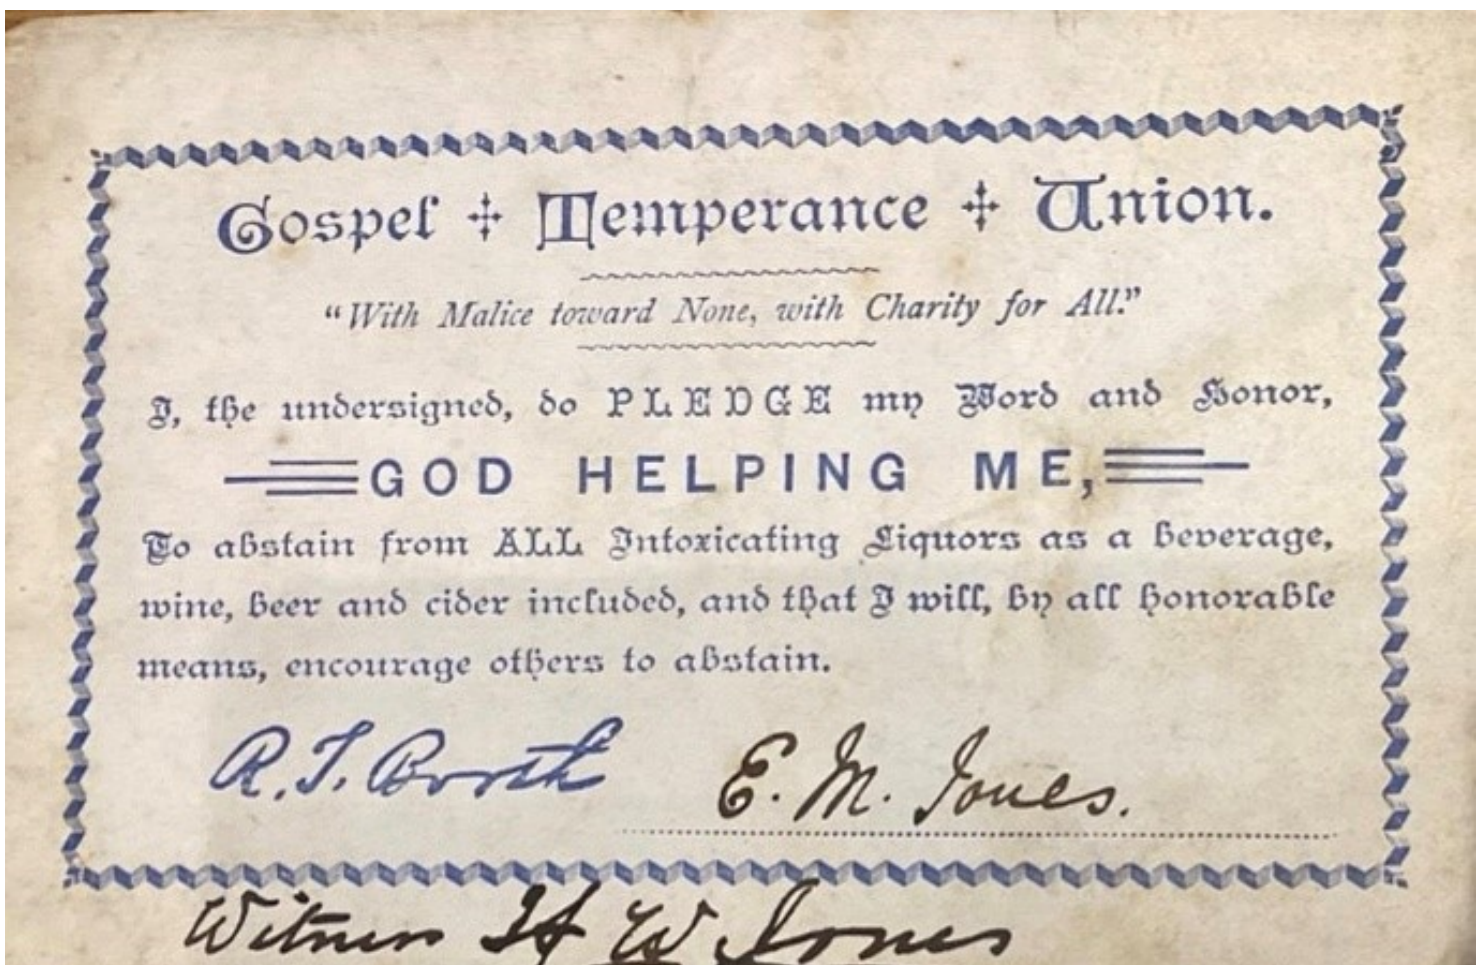 Gospel ✣ Temperance ✣ Union.
"With Malice toward None, with Charity for All."
I, the undersigned, do PLEDGE my Word and Honor,
GOD HELPING ME,
To abstain from ALL Intoxicating Liquors as a beverage,
wine, beer and cider included, and that I will, by all honorable
means, encourage others to abstain.
R. T. Booth E. M. Jones.
Witness H W Jones